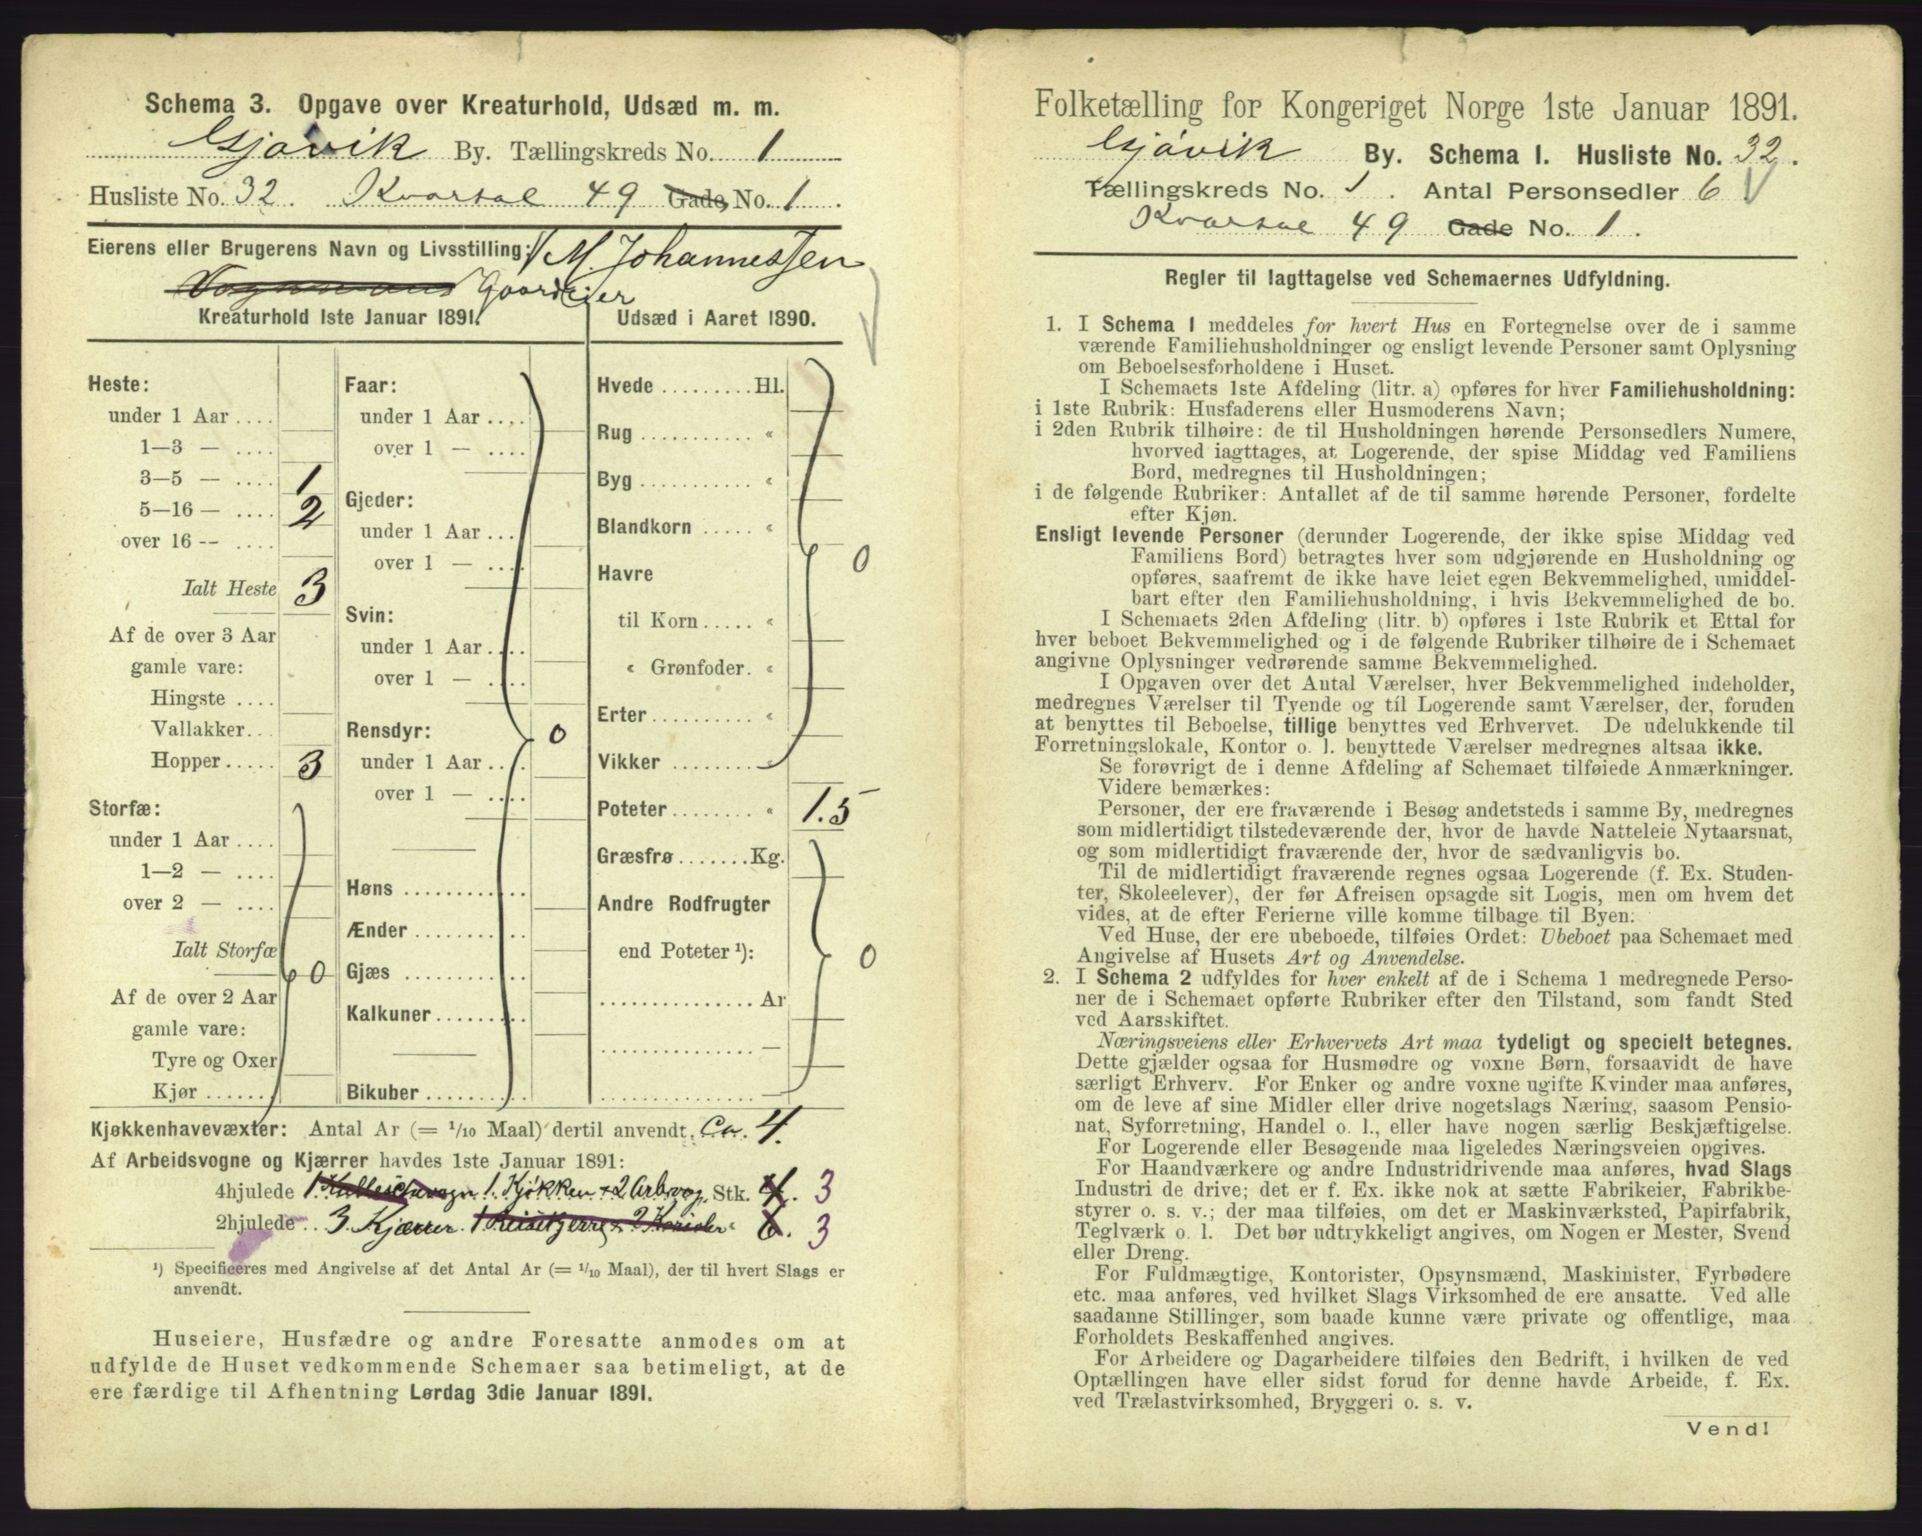 Schema 3. Opgave over Kreaturhold, Udsæd m. m.
Gjøvik By. Tællingskreds No. 1
Husliste No. 32 Kvartal 49 Gade, No. 1.
Eierens eller Brugerens Navn og Livsstilling: M. Johannessen
Vognmand Gaardeier
Kreaturhold 1ste Januar 1891.
Heste:
under 1 Aar ....
1—3 — ....
3—5 — .... 1
5—16 — .... 2
over 16 -- ....
Ialt Heste 3
Af de over 3 Aar
gamle vare:
Hingste ....
Vallakker...
Hopper..... 3
Storfæ:
under 1 Aar ....
1—2 — ....
over 2 — ....
Ialt Storfæ
0
Af de over 2 Aar
gamle vare:
Tyre og Oxer
Kjør .......
Faar:
under 1 Aar ....
over 1 — ....
Gjeder:
under 1 Aar ...
over 1 — ....
Svin:
under 1 Aar ....
over 1 — ....
Rensdyr: 0
under 1 Aar ....
over 1 — ....
Høns ............
Ænder ...........
Gjæs ............
Kalkuner.........
Bikuber ..........
Udsæd i Aaret 1890.
Hvede ........ Hl.
Rug ........... «
Byg ........... «
Blandkorn ..... «
0
Havre
til Korn..... «
« Grønfoder. «
Erter.......... «
Vikker ........ «
Poteter........ « 1.5
Græsfrø....... Kg.
Andre Rodfrugter
end Poteter ¹): 0
............... Ar
............... —
...............
Kjøkkenhavevæxter: Antal Ar (= 1/10 Maal) dertil anvendt. Ca. 4.
Af Arbeidsvogne og Kjærrer havdes 1ste Januar 1891:
4hjulede 1 Kjøkken + 2 Arb.vog. Stk. 4. 3
2hjulede .. 3 Kjærrer. « 6. 3
¹) Specificeres med Angivelse af det Antal Ar (= 1/10 Maal), der til hvert Slags er
anvendt.
Huseiere, Husfædre og andre Foresatte anmodes om at
udfylde de Huset vedkommende Schemaer saa betimeligt, at de
ere færdige til Afhentning Lørdag 3die Januar 1891.
Folketælling for Kongeriget Norge 1ste Januar 1891.
Gjøvik By. Schema 1. Husliste No. 32.
Tællingskreds No. 1. Antal Personsedler 6
Kvartal 49 Gade No. 1.
Regler til Iagttagelse ved Schemaernes Udfyldning.
1. I Schema 1 meddeles for hvert Hus en Fortegnelse over de i samme
værende Familiehusholdninger og ensligt levende Personer samt Oplysning
om Beboelsesforholdene i Huset.
I Schemaets 1ste Afdeling (litr. a) opføres for hver Familiehusholdning:
i 1ste Rubrik: Husfaderens eller Husmoderens Navn;
i 2den Rubrik tilhøire: de til Husholdningen hørende Personsedlers Numere,
hvorved iagttages, at Logerende, der spise Middag ved Familiens
Bord, medregnes til Husholdningen;
i de følgende Rubriker: Antallet af de til samme hørende Personer, fordelte
efter Kjøn.
Ensligt levende Personer (derunder Logerende, der ikke spise Middag ved
Familiens Bord) betragtes hver som udgjørende en Husholdning og
opføres, saafremt de ikke have leiet egen Bekvemmelighed, umiddel-
bart efter den Familiehusholdning, i hvis Bekvemmelighed de bo.
I Schemaets 2den Afdeling (litr. b) opføres i 1ste Rubrik et Ettal for
hver beboet Bekvemmelighed og i de følgende Rubriker tilhøire de i Schemaet
angivne Oplysninger vedrørende samme Bekvemmelighed.
I Opgaven over det Antal Værelser, hver Bekvemmelighed indeholder,
medregnes Værelser til Tyende og til Logerende samt Værelser, der, foruden
at benyttes til Beboelse, tillige benyttes ved Erhvervet. De udelukkende til
Forretningslokale, Kontor o. l. benyttede Værelser medregnes altsaa ikke.
Se forøvrigt de i denne Afdeling af Schemaet tilføiede Anmærkninger.
Videre bemærkes:
Personer, der ere fraværende i Besøg andetsteds i samme By, medregnes
som midlertidigt tilstedeværende der, hvor de havde Natteleie Nytaarsnat,
og som midlertidigt fraværende der, hvor de sædvanligvis bo.
Til de midlertidigt fraværende regnes ogsaa Logerende (f. Ex. Studen-
ter, Skoleelever), der før Afreisen opsagde sit Logis, men om hvem det
vides, at de efter Ferierne ville komme tilbage til Byen.
Ved Huse, der ere ubeboede, tilføies Ordet: Ubeboet paa Schemaet med
Angivelse af Husets Art og Anvendelse.
2. I Schema 2 udfyldes for hver enkelt af de i Schema 1 medregnede Perso-
ner de i Schemaet opførte Rubriker efter den Tilstand, som fandt Sted
ved Aarsskiftet.
Næringsveiens eller Erhvervets Art maa tydeligt og specielt betegnes.
Dette gjælder ogsaa for Husmødre og voxne Børn, forsaavidt de have
særligt Erhverv. For Enker og andre voxne ugifte Kvinder maa anføres,
om de leve af sine Midler eller drive nogetslags Næring, saasom Pensio-
nat, Syforretning, Handel o. l., eller have nogen særlig Beskjæftigelse.
For Logerende eller Besøgende maa ligeledes Næringsveien opgives.
For Haandværkere og andre Industridrivende maa anføres, hvad Slags
Industri de drive; det er f. Ex. ikke nok at sætte Fabrikeier, Fabrikbe-
styrer o. s. v.; der maa tilføies, om det er Maskinværksted, Papirfabrik,
Teglværk o. l. Det bør udtrykkeligt angives, om Nogen er Mester, Svend
eller Dreng.
For Fuldmægtige, Kontorister, Opsynsmænd, Maskinister, Fyrbødere
etc. maa anføres, ved hvilket Slags Virksomhed de ere ansatte. Ved alle
saadanne Stillinger, som baade kunne være private og offentlige, maa
Forholdets Beskaffenhed angives.
For Arbeidere og Dagarbeidere tilføies den Bedrift, i hvilken de ved
Optællingen have eller sidst forud for denne havde Arbeide, f. Ex.
ved Trælastvirksomhed, Bryggeri o. s. v.
Vend!